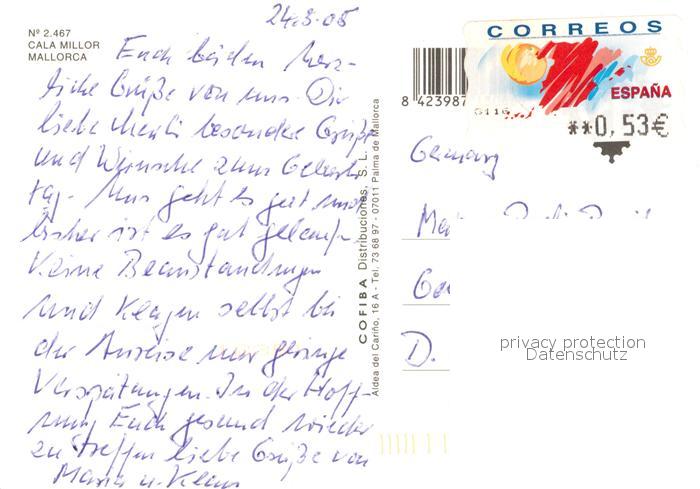 24.3.05
Nº 2.467
CALA MILLOR
MALLORCA
Euch beiden herz-
liche Grüße von uns. Dir
liebe besondere Grüße
und Wünsche zum Geburts-
tag. Uns geht es gut und
bisher ist es gut gelaufen
Keine Beanstandungen
und Klagen selbst bei
der Anreise nur geringe
Verspätungen. In der Hoff-
nung Euch gesund wieder
zu treffen liebe Grüße von
Maria u. Klaus
COFIBA Distribuciones, S. L.
Aldea del Cariño, 16 A - Tel. 73 68 97 - 07011 Palma de Mallorca
8 423987
CORREOS
ESPAÑA
0116
**0,53€
Germany
D.
privacy protection
Datenschutz